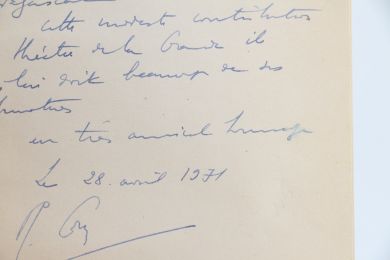 cette modeste contribution
théâtre de la Grande île
lui doit beaucoup de ses
en très amical hommage
Le 28 avril 1971